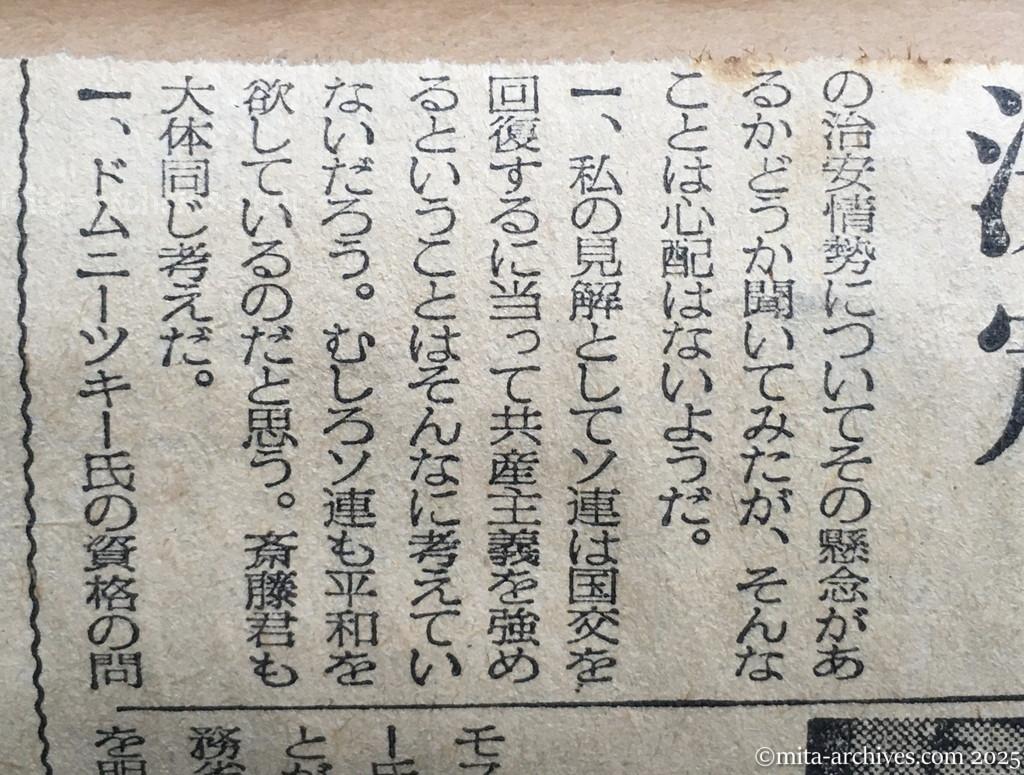 の治安情勢についてその懸念があ
るかどうか聞いてみたが、そんな
ことは心配はないようだ。
一、私の見解としてソ連は国交を
回復するに当って共産主義を強め
るということはそんなに考えてい
ないだろう。むしろソ連も平和を
欲しているのだと思う。斎藤君も
大体同じ考えだ。
一、ドムニーツキー氏の資格の問
モ
ー氏
とが
務省
を明
©mita-archives.com 2025